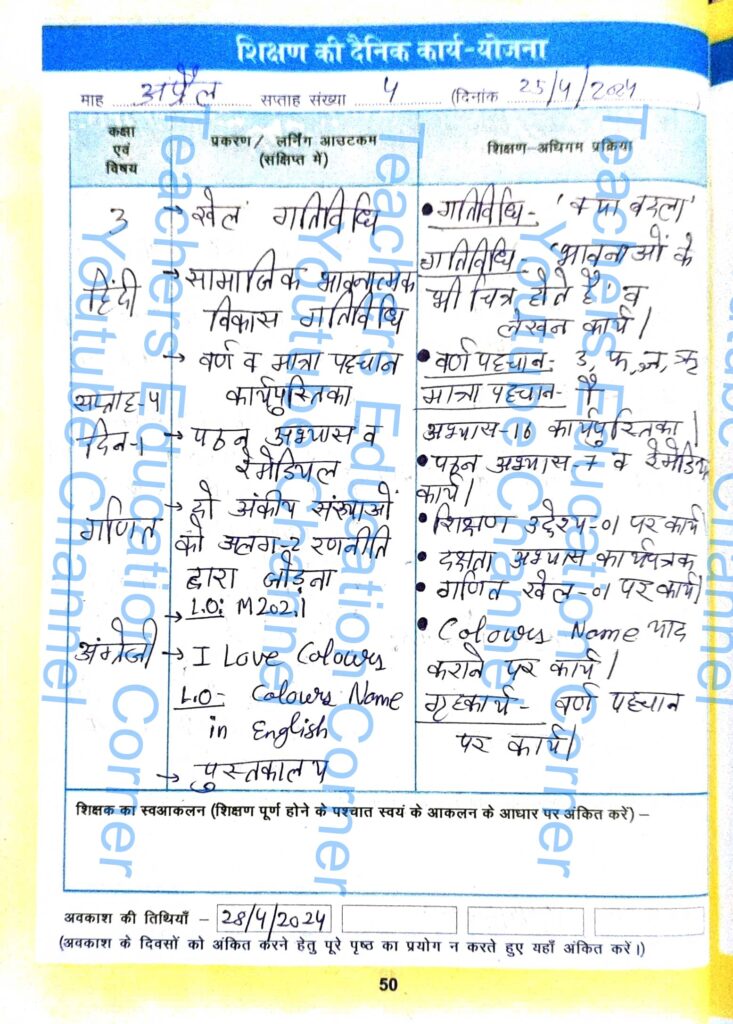 शिक्षण की दैनिक कार्य-योजना
माह अप्रैल सप्ताह संख्या 4 (दिनांक 25/4/2024
कक्षा
एवं
विषय
प्रकरण/ लर्निंग आउटकम
(संक्षिप्त में)
शिक्षण-अधिगम प्रक्रिया
3
हिंदी
सप्ताह-4
दिन-1
गणित
अंग्रेजी
→ खेल गतिविधि
→ सामाजिक भावनात्मक
विकास गतिविधि
→ वर्ण व मात्रा पहचान
कार्यपुस्तिका
→ पठन अभ्यास व
रेमेडियल
→ दो अंकीय संख्याओं
को अलग-2 रणनीति
द्वारा जोड़ना
→ L.O: M202.1
→ I Love Colours
L.O- Colours Name
in English
→ पुस्तकालय
• गतिविधि- 'क्या बदला'
गतिविधि- 'भावनाओं के
भी चित्र होते हैं' व
लेखन कार्य।
• वर्ण पहचान- उ, फ, ञ, ऋ
मात्रा पहचान- ै।
अभ्यास-16 कार्यपुस्तिका।
• पठन अभ्यास-7 व रेमेडियल
कार्य।
• शिक्षण उद्देश्य-01 पर कार्य
• दक्षता अभ्यास कार्यपत्रक
• गणित खेल-01 पर कार्य।
• Colours Name याद
कराने पर कार्य।
गृहकार्य- वर्ण पहचान
पर कार्य।
शिक्षक का स्वआकलन (शिक्षण पूर्ण होने के पश्चात स्वयं के आकलन के आधार पर अंकित करें) –
अवकाश की तिथियाँ – 28/4/2024
(अवकाश के दिवसों को अंकित करने हेतु पूरे पृष्ठ का प्रयोग न करते हुए यहाँ अंकित करें।)
50
Teachers Education Corner
Youtube Channel
Teachers Education Corner
Youtube Channel
Teachers Education Corner
Youtube Channel